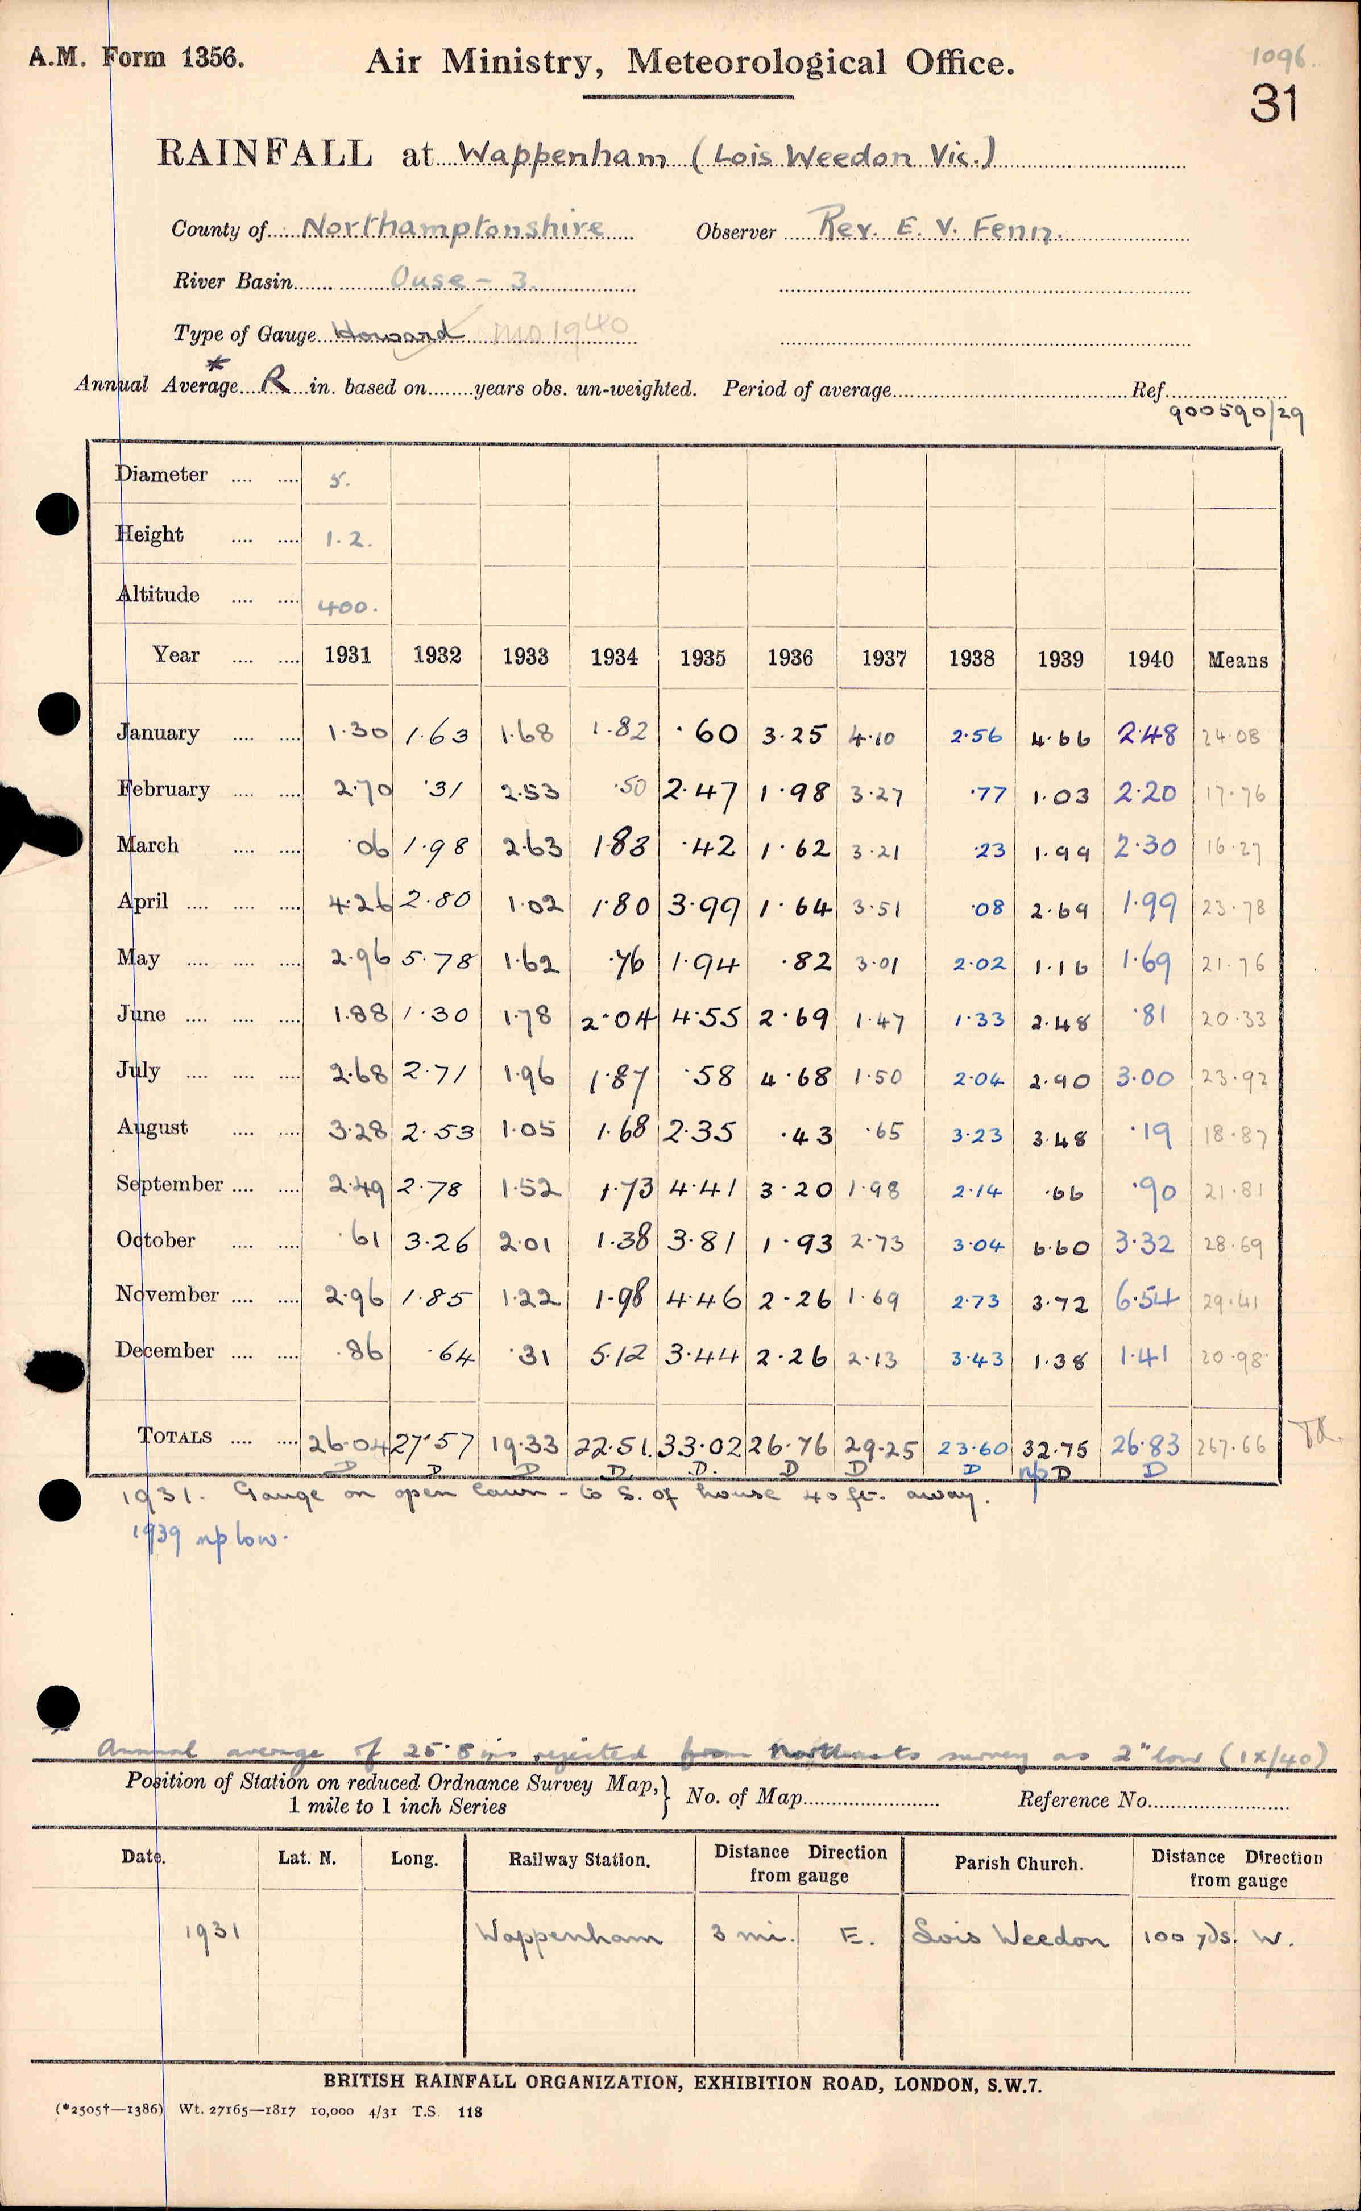 A.M. Form 1356.
Air Ministry, Meteorological Office.
1096.
31
RAINFALL at Wappenham (Lois Weedon Vic.)
County of Northamptonshire Observer Rev. E. V. Fenn.
River Basin Ouse - 3.
Type of Gauge Howard MO 1940
*
Annual Average R in. based on years obs. un-weighted. Period of average Ref.
900590/29
Diameter 5.
Height 1.2.
Altitude 400.
Year 1931 1932 1933 1934 1935 1936 1937 1938 1939 1940 Means
January 1.30 1.63 1.68 1.82 .60 3.25 4.10 2.56 4.66 2.48 24.08
February 2.70 .31 2.53 .50 2.47 1.98 3.27 .77 1.03 2.20 17.76
March .06 1.98 2.63 1.83 .42 1.62 3.21 .23 1.99 2.30 16.27
April 4.26 2.80 1.02 1.80 3.99 1.64 3.51 .08 2.69 1.99 23.78
May 2.96 5.78 1.62 .76 1.94 .82 3.01 2.02 1.16 1.69 21.76
June 1.88 1.30 1.78 2.04 4.55 2.69 1.47 1.33 2.48 .81 20.33
July 2.68 2.71 1.96 1.87 .58 4.68 1.50 2.04 2.90 3.00 23.92
August 3.28 2.53 1.05 1.68 2.35 .43 .65 3.23 3.48 .19 18.87
September 2.49 2.78 1.52 1.73 4.41 3.20 1.98 2.14 .66 .90 21.81
October .61 3.26 2.01 1.38 3.81 1.93 2.73 3.04 6.60 3.32 28.69
November 2.96 1.85 1.22 1.98 4.46 2.26 1.69 2.73 3.72 6.54 29.41
December .86 .64 .31 5.12 3.44 2.26 2.13 3.43 1.38 1.41 20.98
TOTALS 26.04 27.57 19.33 22.51 33.02 26.76 29.25 23.60 32.75 26.83 267.66
D D D D. D. D D D np D D
1931. Gauge on open lawn - to S. of house 40 ft. away.
1939 np low.
* Annual average of 25.8 ins rejected from Northants survey as 2" low (1x/40)
Position of Station on reduced Ordnance Survey Map,} No. of Map Reference No.
1 mile to 1 inch Series
Date. Lat. N. Long. Railway Station. Distance Direction from gauge Parish Church. Distance Direction from gauge
1931 Wappenham 3 mi. E. Lois Weedon 100 yds. W.
BRITISH RAINFALL ORGANIZATION, EXHIBITION ROAD, LONDON, S.W.7.
(*2505†—1386) Wt. 27165—1817 10,000 4/31 T.S. 118